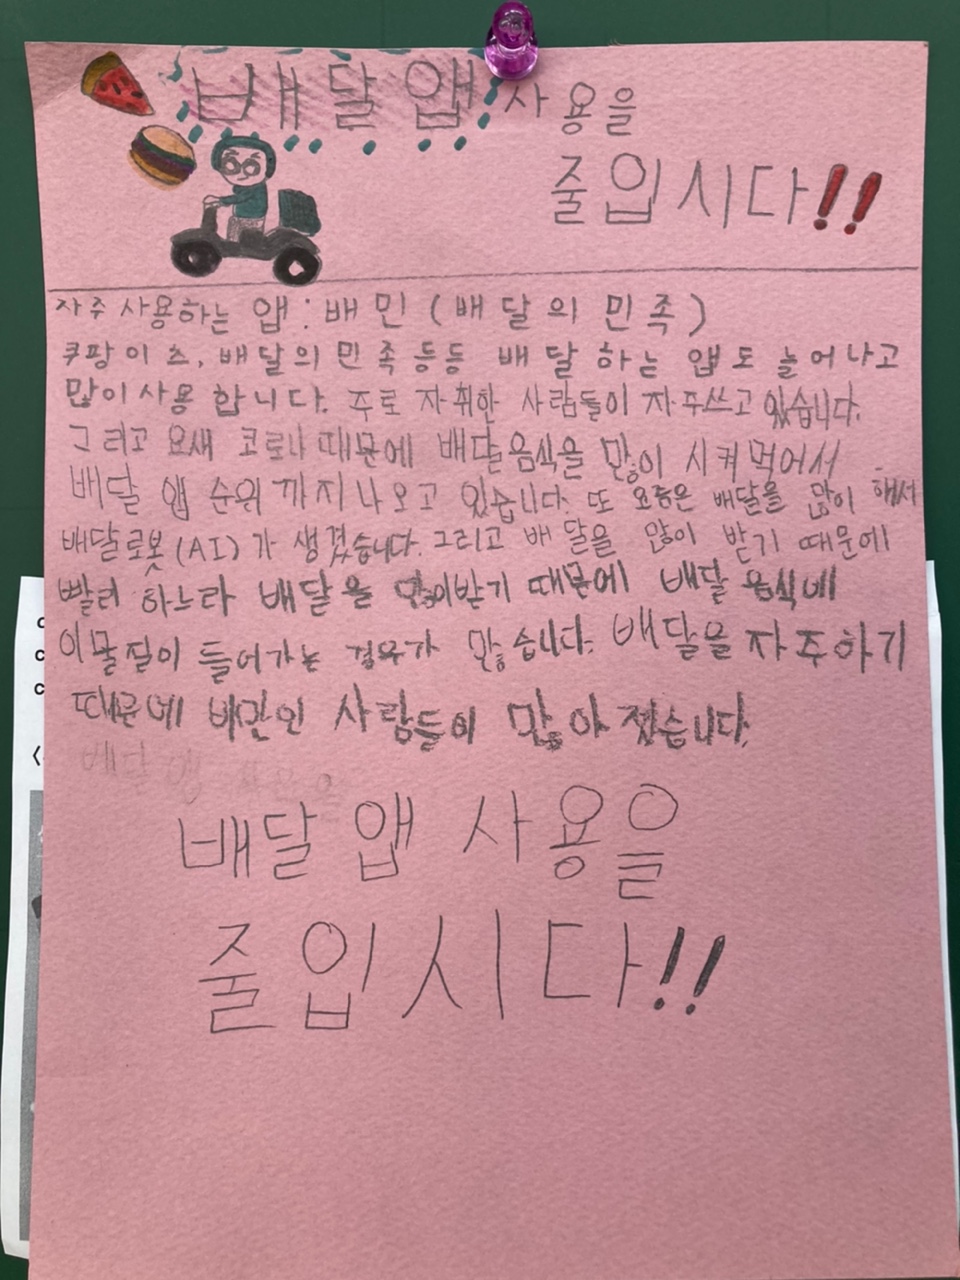 배달앱 사용을
줄입시다!!
자주 사용하는 앱: 배민 (배달의 민족)
쿠팡이츠, 배달의 민족 등등 배달 하는 앱도 늘어나고
많이 사용 합니다. 주로 자취한 사람들이 자주쓰고 있습니다.
그리고 요새 코로나 때문에 배달음식을 많이 시켜 먹어서
배달 앱 순위 까지 나오고 있습니다. 또 요즘은 배달을 많이 해서
배달로봇(AI)가 생겼습니다. 그리고 배달을 많이 받기 때문에
빨리 하느라 배달을 많이받기 때문에 배달 음식에
이물질이 들어가는 경우가 많습니다. 배달을 자주하기
때문에 배만인 사람들이 많아 졌습니다.
배달 앱 사용을
배달 앱 사용을
줄입시다!!